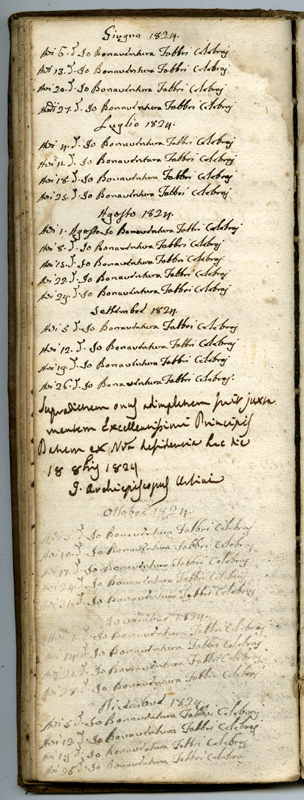 Giugno 1824.
Adì 6. d.º Io Bonaventura Fabbri Celebraj
Adì 13. d.º Io Bonaventura Fabbri Celebraj
Adì 20. d.º Io Bonaventura Fabbri Celebraj
Adì 27. d.º Io Bonaventura Fabbri Celebraj
Luglio 1824.
Adì 4. d.º Io Bonaventura Fabbri Celebraj
Adì 11. d.º Io Bonaventura Fabbri Celebraj
Adì 18. d.º Io Bonaventura Fabbri Celebraj
Adì 25. d.º Io Bonaventura Fabbri Celebraj
Agosto 1824.
Adì 1. Agosto Io Bonaventura Fabbri Celebraj
Adì 8. d.º Io Bonaventura Fabbri Celebraj
Adì 15. d.º Io Bonaventura Fabbri Celebraj
Adì 22. d.º Io Bonaventura Fabbri Celebraj
Adì 29. d.º Io Bonaventura Fabbri Celebraj
Settembre 1824.
Adì 5. d.º Io Bonaventura Fabbri Celebraj
Adì 12. d.º Io Bonaventura Fabbri Celebraj
Adì 19. d.º Io Bonaventura Fabbri Celebraj
Adì 26. d.º Io Bonaventura Fabbri Celebraj
onus adimpletum fuit juxta
mentem Excellentissimi Principis
ex hac die
18 8bris 1824
J. Archiepiscopus Urbini
Ottobre 1824.
Adì d.º Io Bonaventura Fabbri Celebraj
Adì 10. d.º Io Bonaventura Fabbri Celebraj
Adì 17. d.º Io Bonaventura Fabbri Celebraj
Adì 24. d.º Io Bonaventura Fabbri Celebraj
Adì 31. d.º Io Bonaventura Fabbri Celebraj
Novembre 1824.
Adì d.º Io Bonaventura Fabbri Celebraj
Adì 14. d.º Io Bonaventura Fabbri Celebraj
Adì 21. d.º Io Bonaventura Fabbri Celebraj
Adì 28. d.º Io Bonaventura Fabbri Celebraj
1824.
Adì 5. d.º Io Bonaventura Fabbri Celebraj
Adì 12. d.º Io Bonaventura Fabbri Celebraj
Adì 19. d.º Io Bonaventura Fabbri Celebraj
Adì 26. d.º Io Bonaventura Fabbri Celebraj